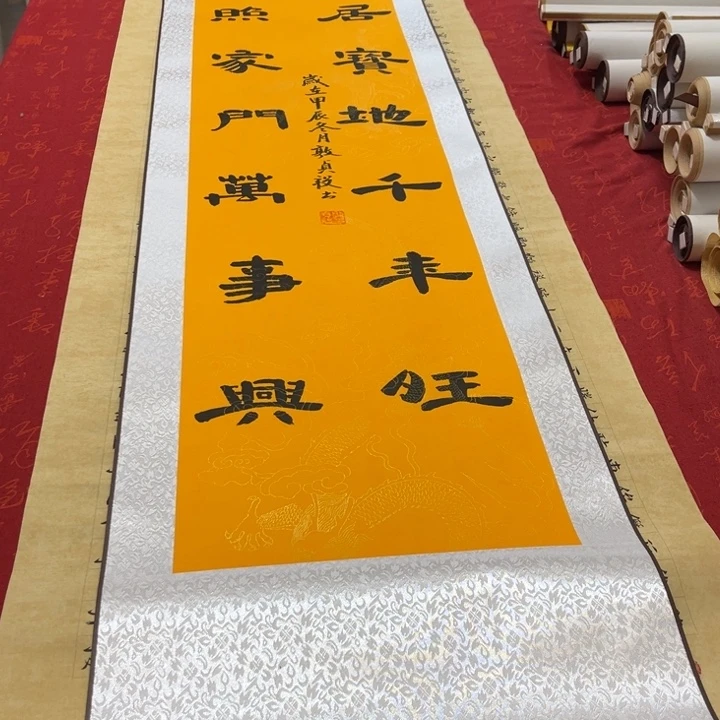 居寶地千年旺
照家門萬事興
歲在甲辰冬月敦貞书